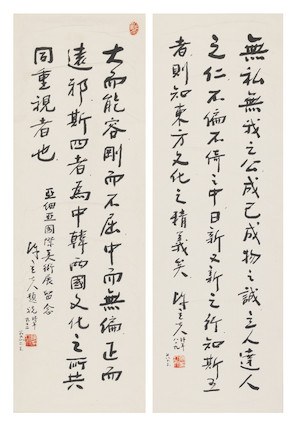 無私無我之公成己成物之誠立人達人
之仁不偏不倚之中日新又新之行知斯五
者則知東方文化之精義矣 陳立夫
大而能容剛而不屈中而無偏正而
遠邪斯四者為中韓兩國文化之所共
同重視者也
亞細亞國際美術展留念
陳立夫題祝